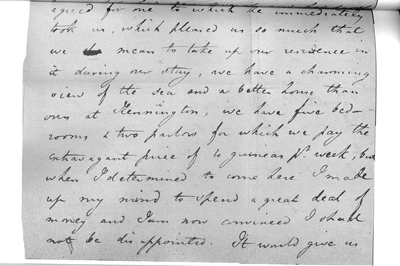 agreed for one to which he immediately
took us, which pleased us so much that
we mean to take up our residence in
it during our stay, we have a charming
view of the sea and a better house than
ours at Kennington, we have five bed-
rooms & two parlors for which we pay the
extravagant price of 10 guineas pr. week, but
when I determined to come here I made
up my mind to spend a great deal of
money and I am now convinced I shall
not be disappointed. It would give us